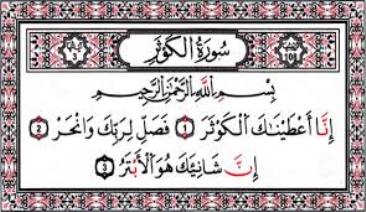 سُورَةُ الْكَوْثَرِ
بِسْمِ اللَّهِ الرَّحْمَٰنِ الرَّحِيمِ
إِنَّا أَعْطَيْنَٰكَ الْكَوْثَرَ 1 فَصَلِّ لِرَبِّكَ وَانْحَرْ 2
إِنَّ شَانِئَكَ هُوَ الْأَبْتَرُ 3